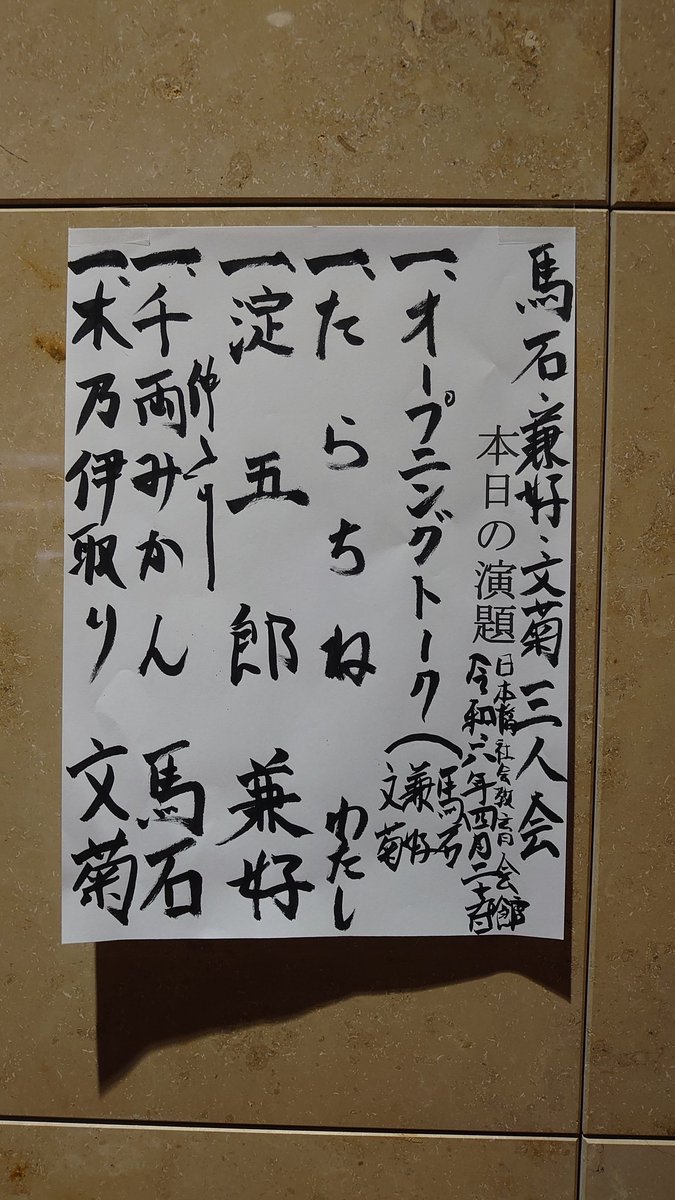 馬石・兼好・文菊 三人会
本日の演題
日本橋社会教育会館
令和六年四月二十
一、オープニングトーク(馬石
兼好
文菊
一、たらちね わたし
一、淀五郎 兼好
仲入り
一、千両みかん 馬石
一、木乃伊取り 文菊